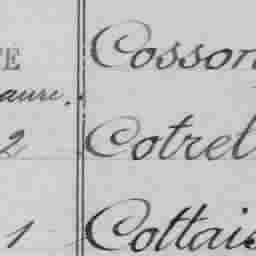 E Cosson
aure.
2 Cotrel
1 Cottais